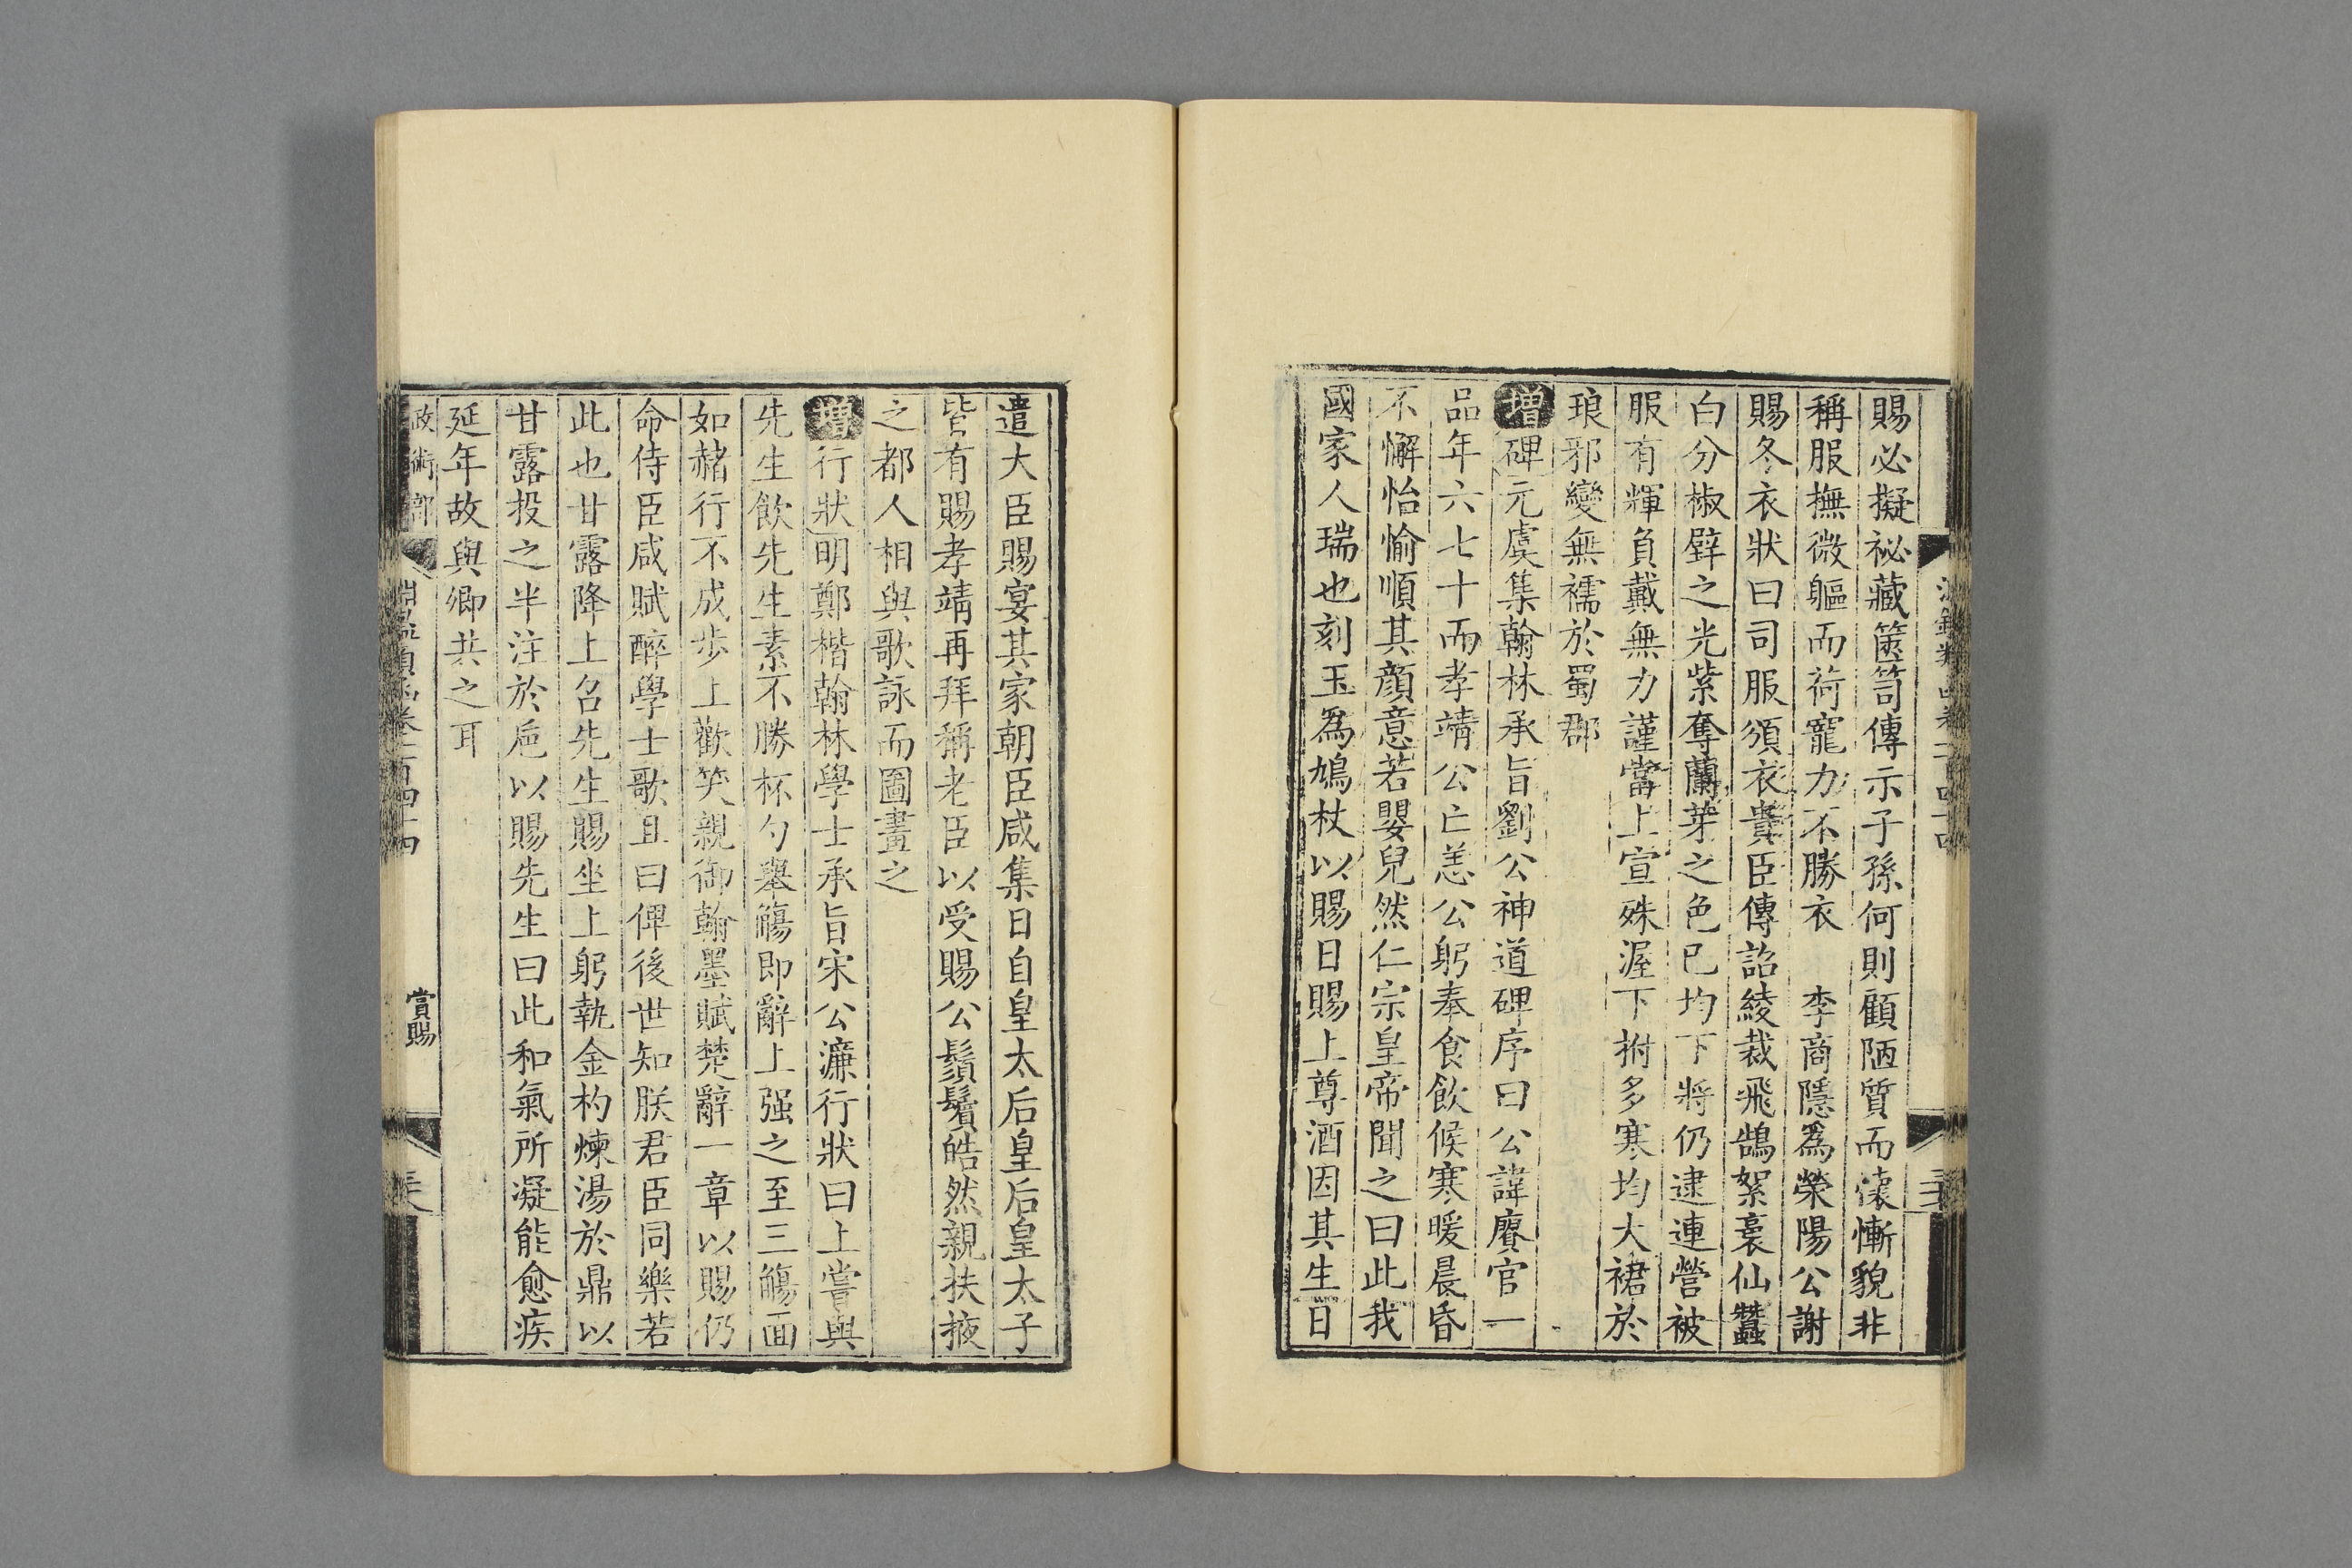 賜必擬祕藏篋笥傳示子孫何則顧陋質而懷慚貌非
稱服撫微軀而荷寵力不勝衣　李商隱爲滎陽公謝
賜冬衣狀曰司服頒衣貴臣傳詔綾裁飛鵠絮裛仙蠶
白分椒壁之光紫奪蘭芽之色已均下將仍逮連營被
服有輝負戴無力謹當上宣殊渥下拊多寒均大裙於
琅邪變無襦於蜀郡
增碑元虞集翰林承旨劉公神道碑序曰公諱賡官一
品年六七十而孝靖公亡恙公躬奉食飲候寒暖晨昏
不懈怡愉順其顏意若嬰兒然仁宗皇帝聞之曰此我
國家人瑞也刻玉爲鳩杖以賜日賜上尊酒因其生日
遣大臣賜宴其家朝臣咸集日自皇太后皇后皇太子
皆有賜孝靖再拜稱老臣以受賜公鬚鬢皓然親扶掖
之都人相與歌詠而圖畫之
增行狀明鄭楷翰林學士承旨宋公濂行狀曰上嘗與
先生飲先生素不勝杯勺舉觴即辭上强之至三觴面
如赭行不成步上歡笑親御翰墨賦楚辭一章以賜仍
命侍臣咸賦醉學士歌且曰俾後世知朕君臣同樂若
此也甘露降上召先生賜坐上躬執金杓煉湯於鼎以
甘露投之半注於巵以賜先生曰此和氣所凝能愈疾
延年故與卿共之耳
政術部　淵鑑類函卷一百四十四　賞賜